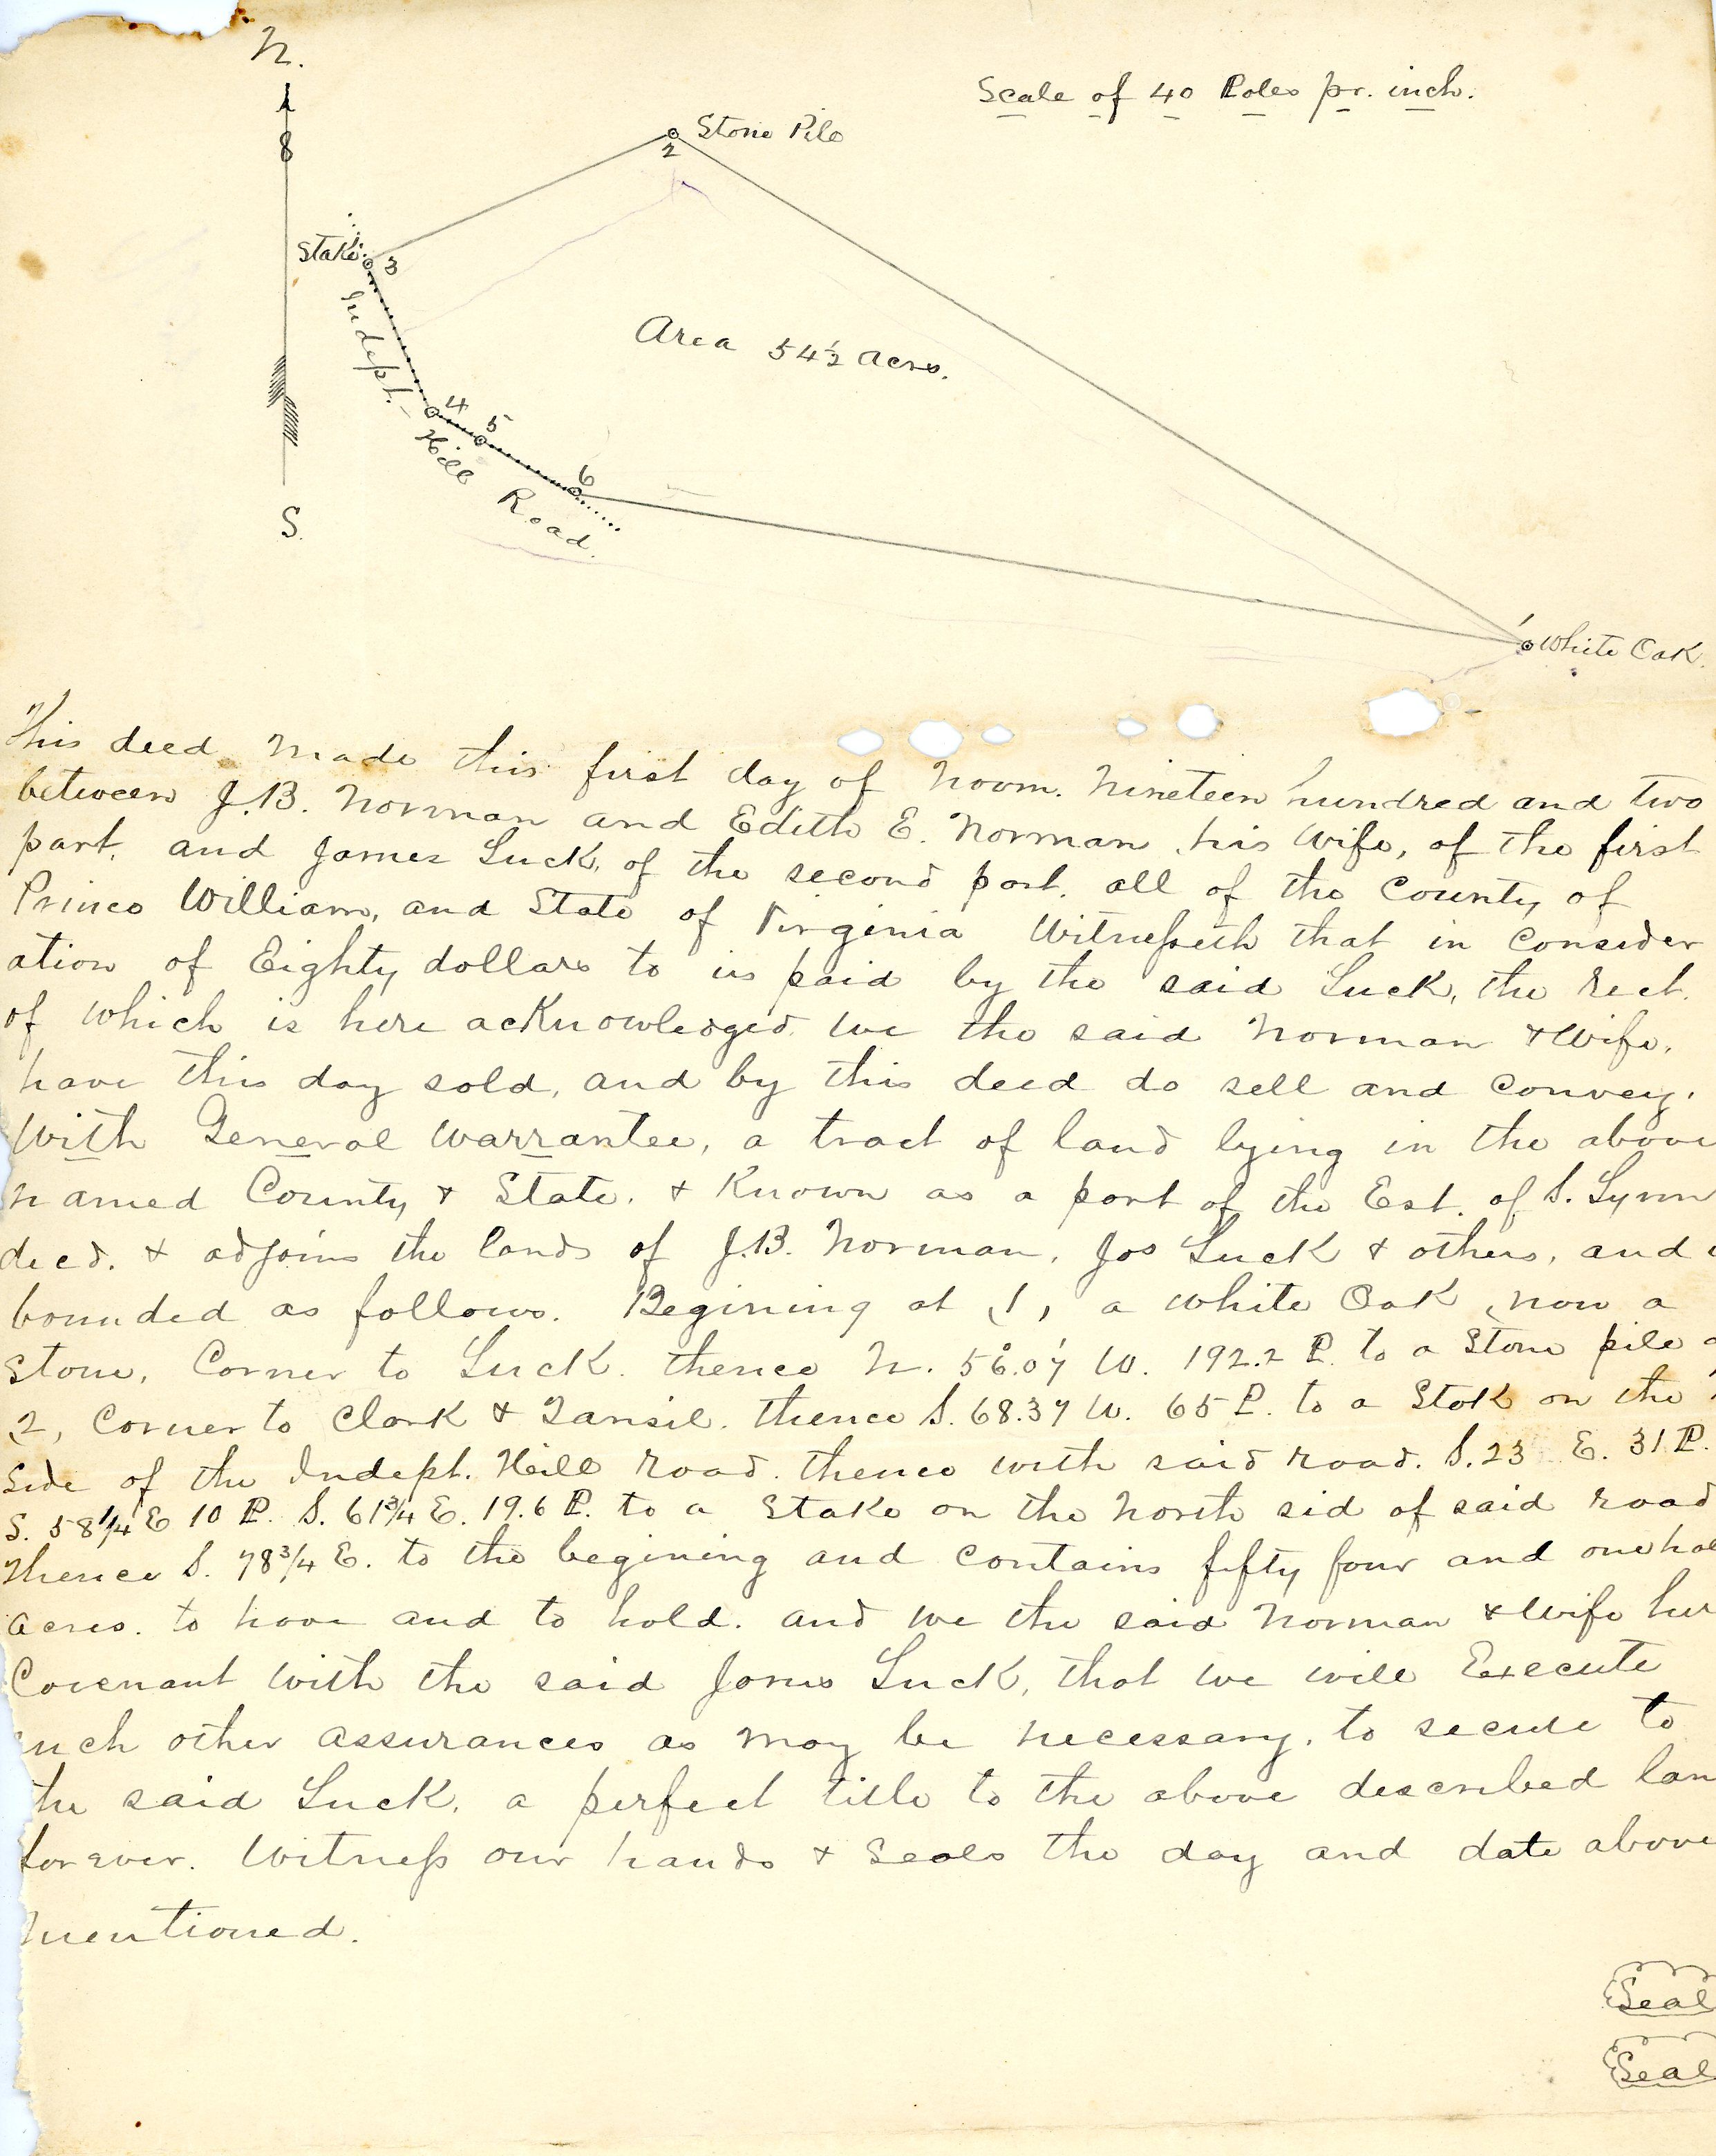 N.
Scale of 40 Poles pr. inch.
Stone Pile
2
8
Stake
3
Indept. Hill Road.
Area 54½ Acres.
4
5
6
S.
1
White Oak.
This deed made this first day of Novm. Nineteen hundred and two
between J.B. Norman and Edith E. Norman his Wife, of the first
part, and James Luck, of the second part. all of the County of
Prince William, and State of Virginia Witnesseth that in consider
ation of Eighty dollars to us paid by the said Luck, the rect.
of which is here acknowledged we the said Norman & Wife,
have this day sold, and by this deed do sell and convey.
With General Warrantee, a tract of land lying in the above
named County & State. & Known as a part of the Est. of S. Lynn
decd. & adjoins the lands of J.B. Norman, Jos Luck & others, and
bounded as follows. Begining at 1, a white Oak, now a
Stone, Corner to Luck. thence N. 56°.07' W. 192.2 P. to a Stone pile
2, Corner to Clark & Tansil. thence S. 68.37 W. 65 P. to a Stak on the
Side of the Indept. Hill road. thence with said road. S. 23 E. 31 P.
S. 58¼ E 10 P. S. 61¾ E. 19.6 P. to a Stake on the North sid of said road
Thence S. 78¾ E. to the begining and contains fifty four and one hal
acres. to have and to hold. and we the said Norman & Wife her
Covenant with the said James Luck, that we will Execute
such other assurances as may be necessary, to secure to
the said Luck, a perfect title to the above described lan
forever. Witness our hands & Seals the day and date above
mentioned.
Seal
Seal